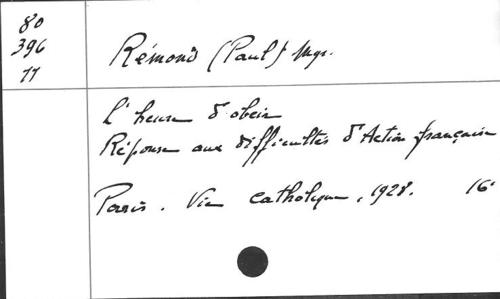 80
396
77
Rémond (Paul) Mgr.
L'heure d'obéir
Réponse aux difficultés d'Action française
Paris. Vie catholique, 1928. 16°